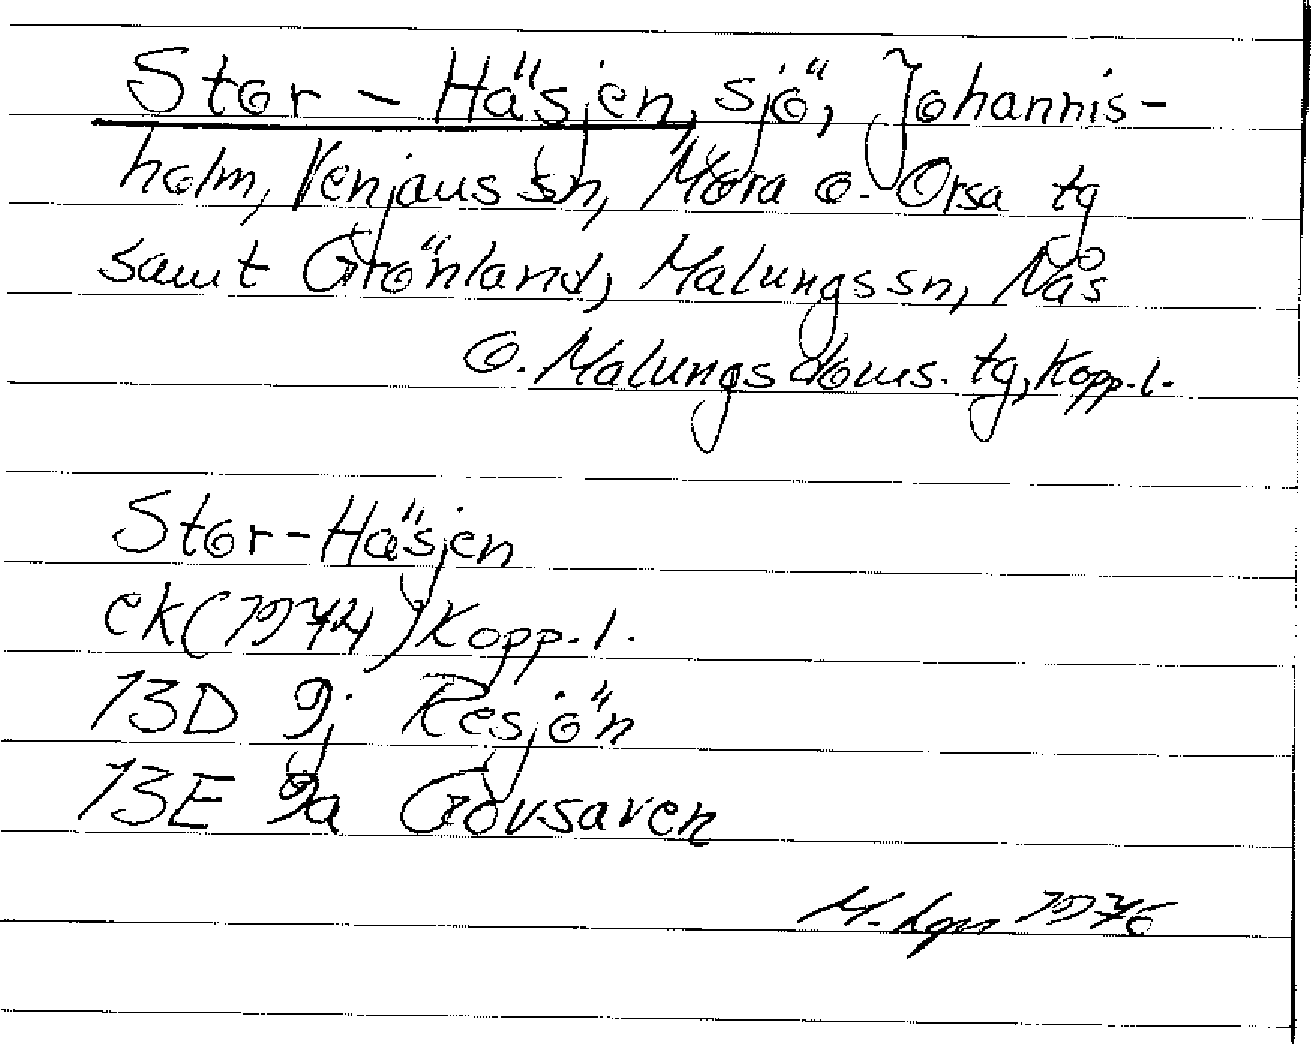 Stor - Häsjen, sjö, Johannis-
holm, Venjans sn, Mora o. Orsa tg
samt Grönland, Malungs sn, Nås
o. Malungs doms. tg, Kopp. l.
Stor-Häsjen
ek (1974) Kopp. l.
13D 9j Resjön
13E 9a Gövsaven
M. Lgn 1976